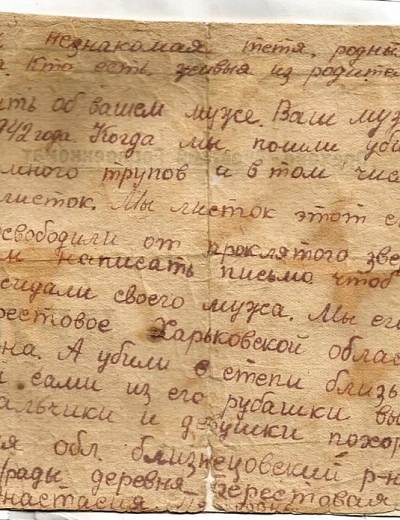 незнакомая тетя, родны
а. Кто есть, живыя из родите
ить об вашем муже. Ваш муж
1942 года. Когда мы, пошли уби
много трупов и в том чис
листок. Мы листок этот с
освободили от проклятого звер
м написать письмо чтоб
ожидали своего мужа. Мы ег
рестовое Харьковской облас
на. А убили в степи близь
и сами из его рубашки вы
альчики и девушки похор
ая обл. близнецовский р-н
грады деревня Берестовая
настасия